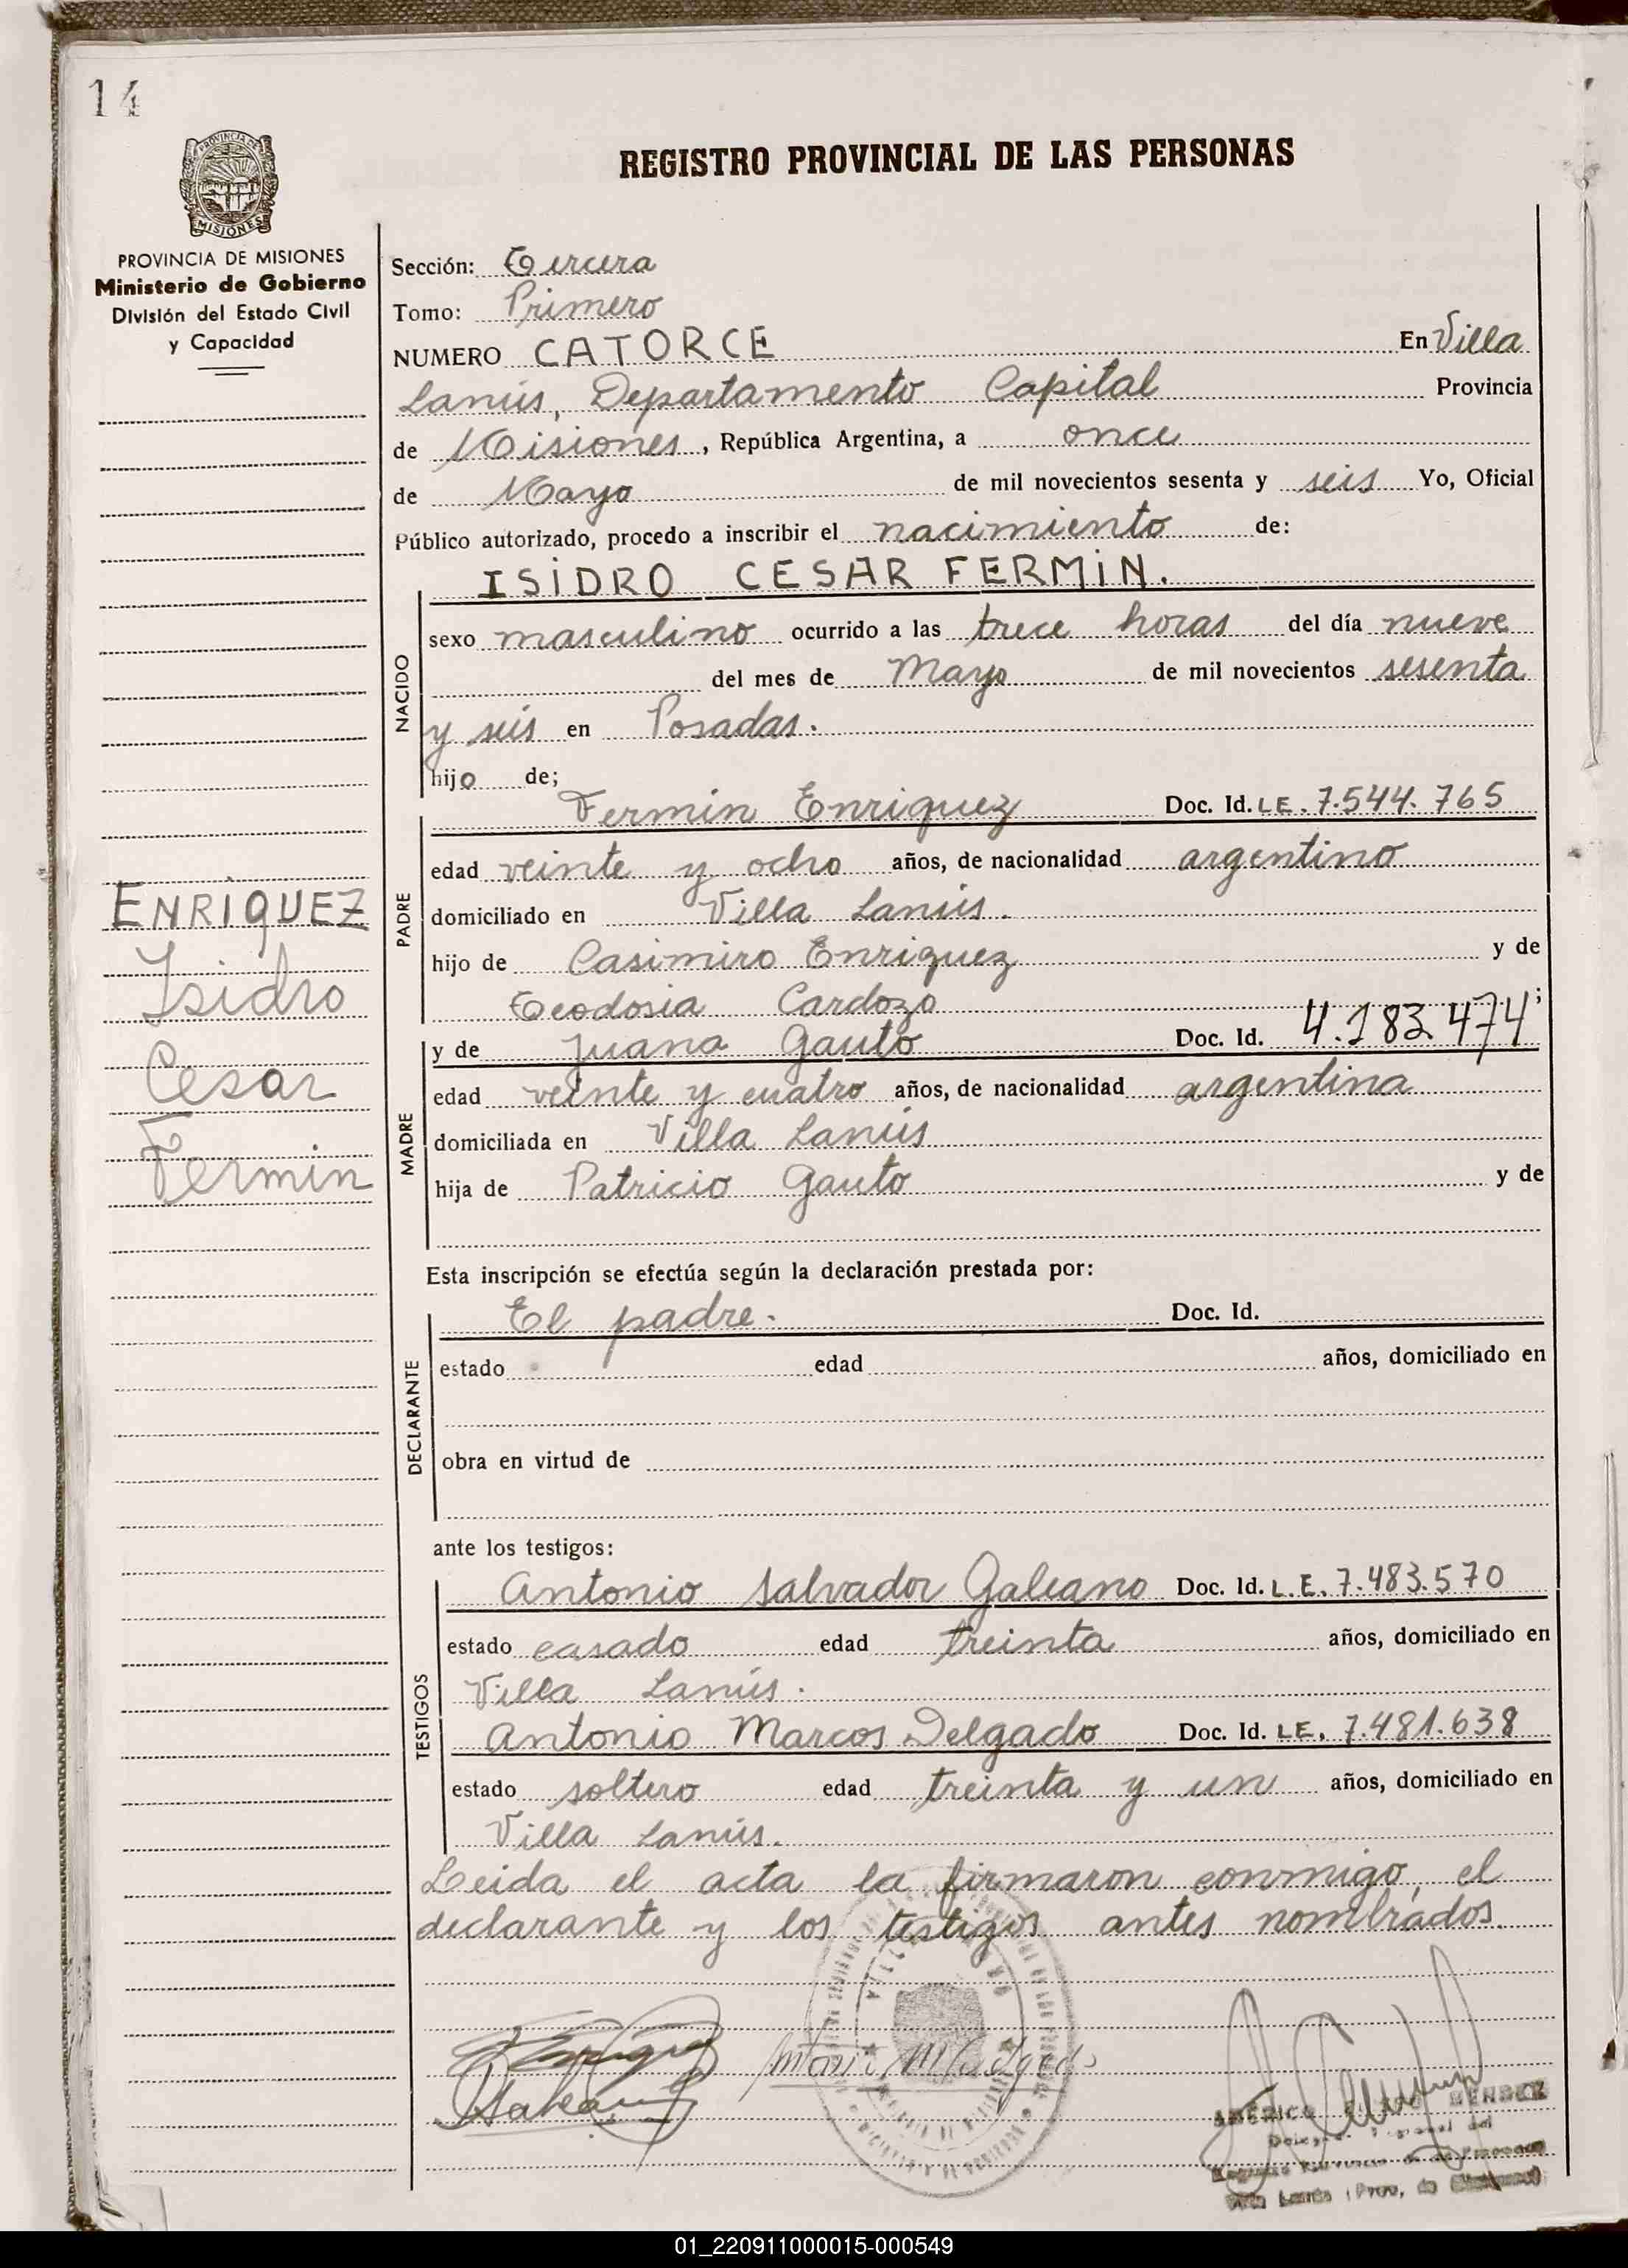 14
PROVINCIA DE
MISIONES
PROVINCIA DE MISIONES
Ministerio de Gobierno
División del Estado Civil
y Capacidad
REGISTRO PROVINCIAL DE LAS PERSONAS
Sección: Tercera
Tomo: Primero
NUMERO CATORCE En Villa
Lanús, Departamento Capital Provincia
de Misiones, República Argentina, a once
de Mayo de mil novecientos sesenta y seis Yo, Oficial
Público autorizado, procedo a inscribir el nacimiento de:
ISIDRO CESAR FERMIN.
NACIDO
sexo masculino ocurrido a las trece horas del día nueve
del mes de Mayo de mil novecientos sesenta
y seis en Posadas.
hijo de;
PADRE
Fermin Enriquez Doc. Id. LE. 7.544.765
edad veinte y ocho años, de nacionalidad argentino
domiciliado en Villa Lanús.
hijo de Casimiro Enriquez y de
Teodosia Cardozo ;
MADRE
y de Juana Gauto Doc. Id. 4.183.474
edad veinte y cuatro años, de nacionalidad argentina
domiciliada en Villa Lanús
hija de Patricio Gauto y de
ENRIQUEZ
Isidro
Cesar
Fermin
Esta inscripción se efectúa según la declaración prestada por:
DECLARANTE
El padre. Doc. Id.
estado edad años, domiciliado en
obra en virtud de
ante los testigos:
TESTIGOS
Antonio Salvador Galeano Doc. Id. L.E. 7.483.570
estado casado edad treinta años, domiciliado en
Villa Lanús.
Antonio Marcos Delgado Doc. Id. LE. 7.481.638
estado soltero edad treinta y un años, domiciliado en
Villa Lanús.
Leida el acta la firmaron conmigo, el
declarante y los testigos antes nombrados.
AMERICO MENDEZ
01_220911000015-000549